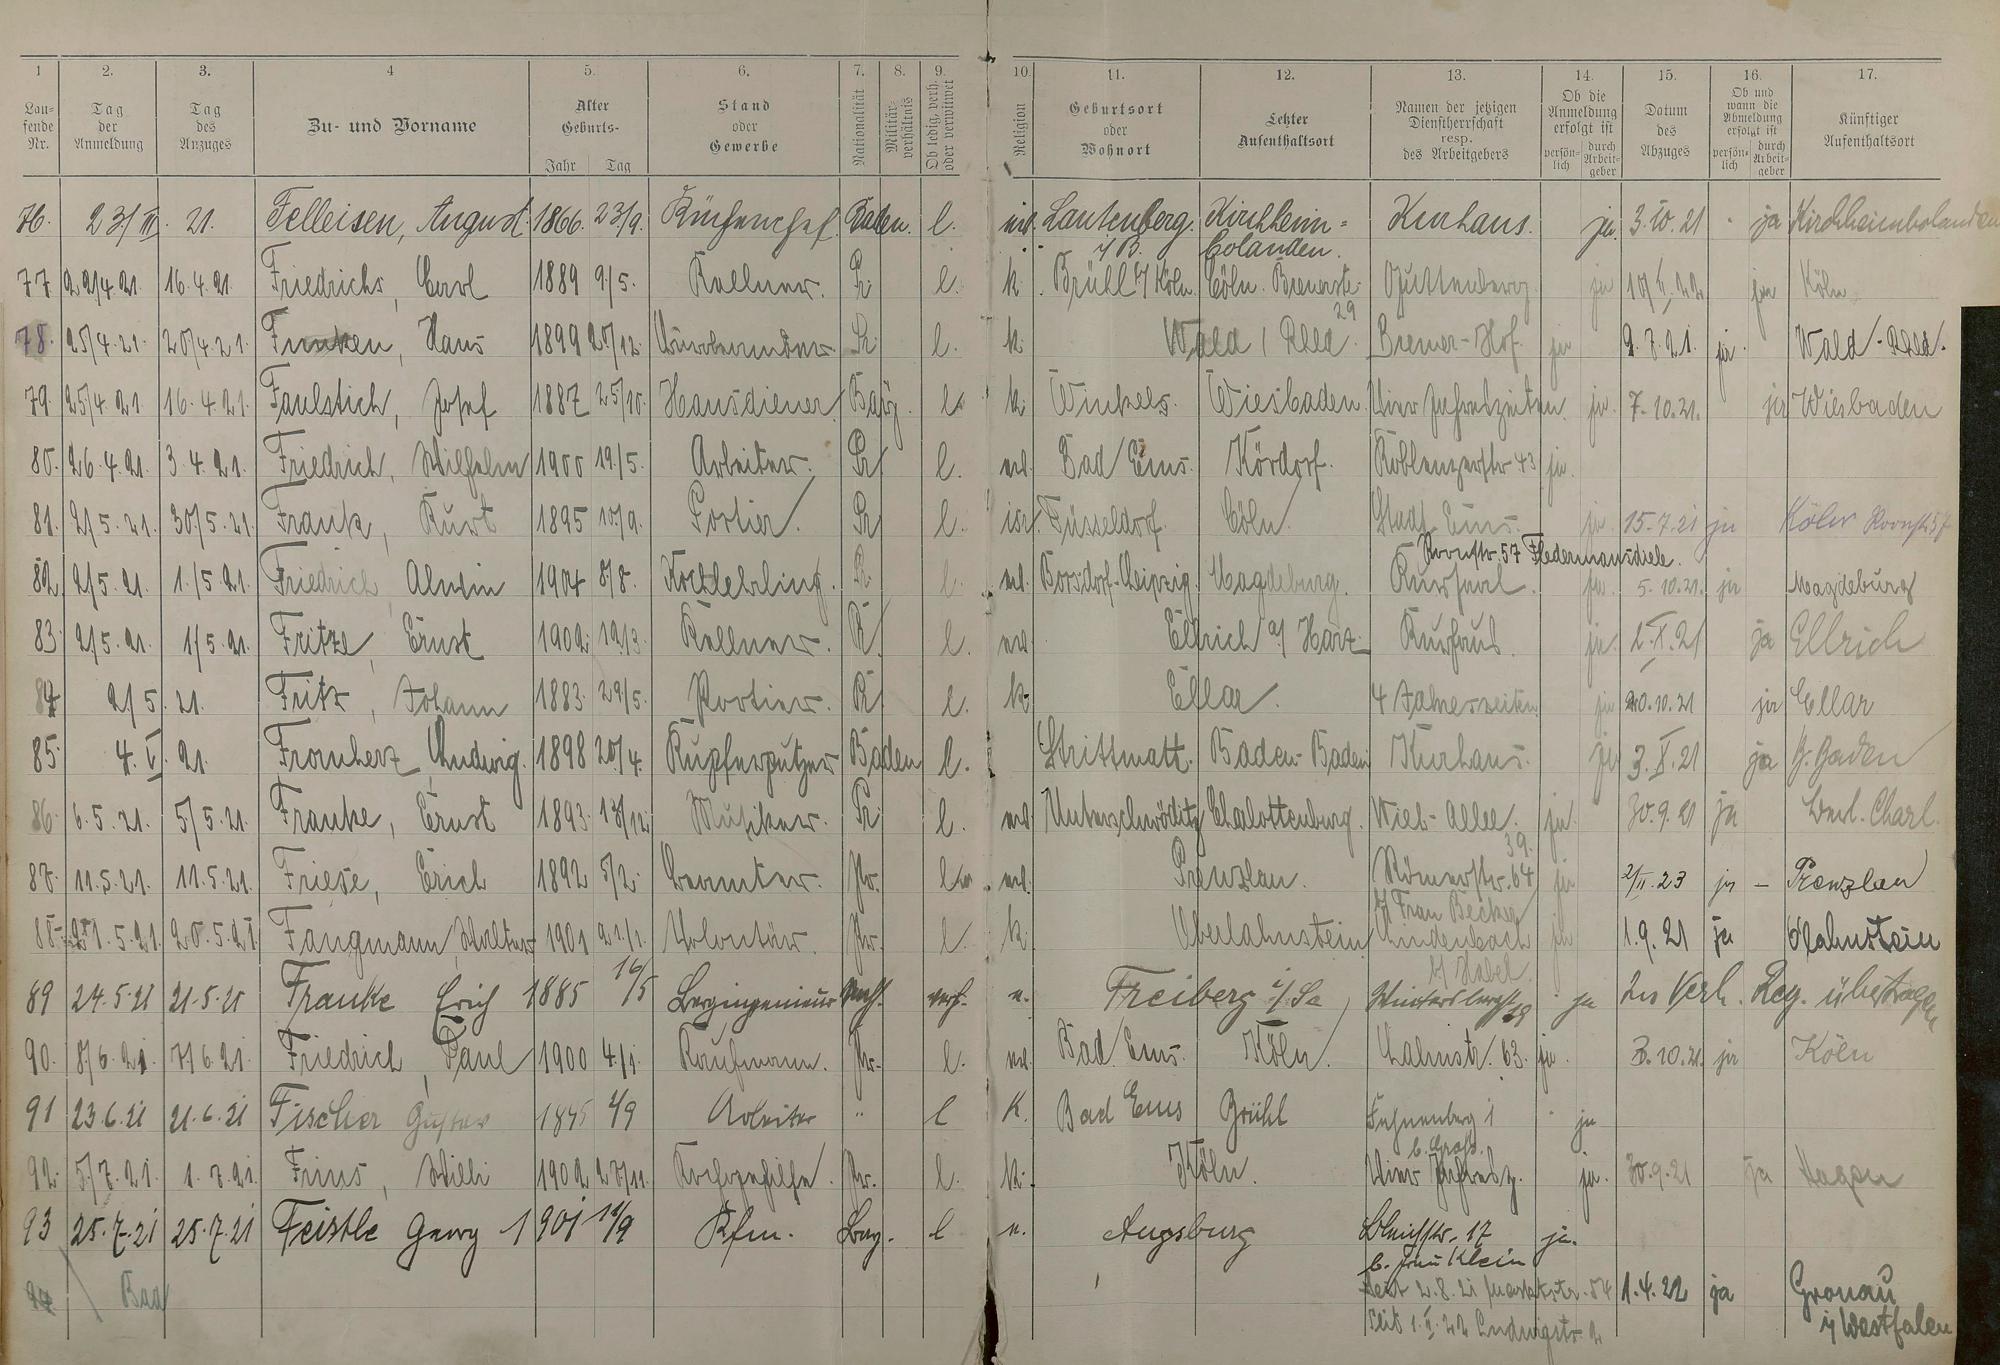 1 2. 3. 4 5. 6. 7. 8. 9. 10. 11. 12. 13. 14. 15. 16. 17.
Lau-fende Nr. Tag der Anmeldung Tag des Anzuges Zu- und Vorname Alter Geburts- Jahr Tag Stand oder Gewerbe Nationalität Militär-verhältnis Ob ledig, verh. oder verwitwet Religion Geburtsort oder Wohnort Letzter Aufenthaltsort Namen der jetzigen Dienstherrschaft resp. des Arbeitgebers Ob die Anmeldung erfolgt ist persön-lich durch Arbeit-geber Datum des Abzuges Ob und wann die Abmeldung erfolgt ist persön-lich durch Arbeit-geber Künftiger Aufenthaltsort
76. 23/III. 21. Felleisen, August. 1866. 23/9. Küchenchef. Baden. l. Lautenberg i/B. Kirchheim= bolanden. Kurhaus. ja. 3.10.21 ja Kirchheimbolanden
77 22/4.21. 16.4.21. Friedrichs, Carl 1889 9/5. Kellner. Pr l. k. Brühl b/ Köln. Cöln. 29 Guttenberg. ja ja Köln
78. 25/4.21. 20/4.21. Funken, Hans 1899 Pr l. k. Wald / Rhld. Bremer-Hof. ja 2.7.21. ja. Wald-Rhld.
79. 25/4.21. 16.4.21. Faulstich, Josef 1887 25/10. Hausdiener Bay. l. k. Winkels. Wiesbaden. Vier Jahreszeiten. ja. 7.10.21. ja Wiesbaden
80. 26.4.21. 3.4.21. Friedrich, Wilhelm 1900 19/5. Arbeiter. Pr l. Bad Ems. Kördorf. Koblenzerstr 43 ja.
81. 2/5.21. 30/5.21. Frank, Kurt 1895 10/9. Portier. Pr l. isr. Düsseldorf. Cöln. Stadt Ems. ja. 15.7.21 ja Köln Roonstr 57
Roonstr. 57 Fledermausdiele.
82 2/5.21. 1./5.21. Friedrich, Alwin 1904 8/8. Kochlehrling. Pr l. Borsdorf-Leipzig. Magdeburg. Kursaal. ja. 5.10.21. ja Magdeburg
83. 2/5.21. 1/5.21. Fritze, Ernst 1902 12/3. Kellner. l. Ellrich a/ Harz. Kurhaus. ja. 2.X.21 ja Ellrich
84 2/5.21. Fritz, Johann 1883. 29/5. Portier. l. k. Ellar. 4 Jahreszeiten ja 20.10.21 ja Ellar
85. 4.V.21. Fromherz Ludwig. 1898 20/4. Kupferputzer Baden l. Strittmatt. Baden-Baden Kurhaus. ja 3.X.21 ja B. Baden
86. 6.5.21. 5/5.21. Franke, Ernst 1893. 13/12. Musiker. Pr l. Unterschwöditz Charlottenburg. Wilh-Allee. 39. ja. 30.9.21 ja Charl.
87. 11.5.21. 11.5.21. Friese, Erich 1892 5/2. Beamter. Pr. Prenzlau. Römerstr. 64 b/ Frau Becker ja 2/II.23 ja – Prenzlau
88. 21.5.21. 20.5.21 Fangmann, Walter 1901 21/1. Volontär. Pr. l. k. Oberlahnstein Lindenbach b/ Habel. ja 1.9.21 ja O'lahnstein
89 24.5.21 21.5.21 Franke Erich 1885 16/5 Bergingenieur verh. Freiberg i/Sa, ja Ins Verh. Reg. übertragen
90. 8/6.21. 7/6.21. Friedrich, Paul 1900 4/1. Kaufmann. Pr. l. Bad Ems. Köln. Lahnstr. 63. ja. 3.10.21. ja Köln
91 23.6.21 21.6.21 Fischer Gustav 4/9 Arbeiter " l k. Bad Ems Brühl b. Groß. ja
92. 5/7.21. 1.7.21. Frins, Willi 1902 Kochgehilfe. Pr. l. k. Köln. Vier Jahresz. ja. 30.9.21 ja Hagen
93 25.7.21 25.7.21 Feistle Georg 1901 Kfm. Bay. l Augsburg 17 b. Frau Klein ja.
94 Bad seit 2.8.21 Marktstr. 54 1.4.22 ja Gronau i/ Westfalen
seit 1.II.22 Ludwigstr. 2